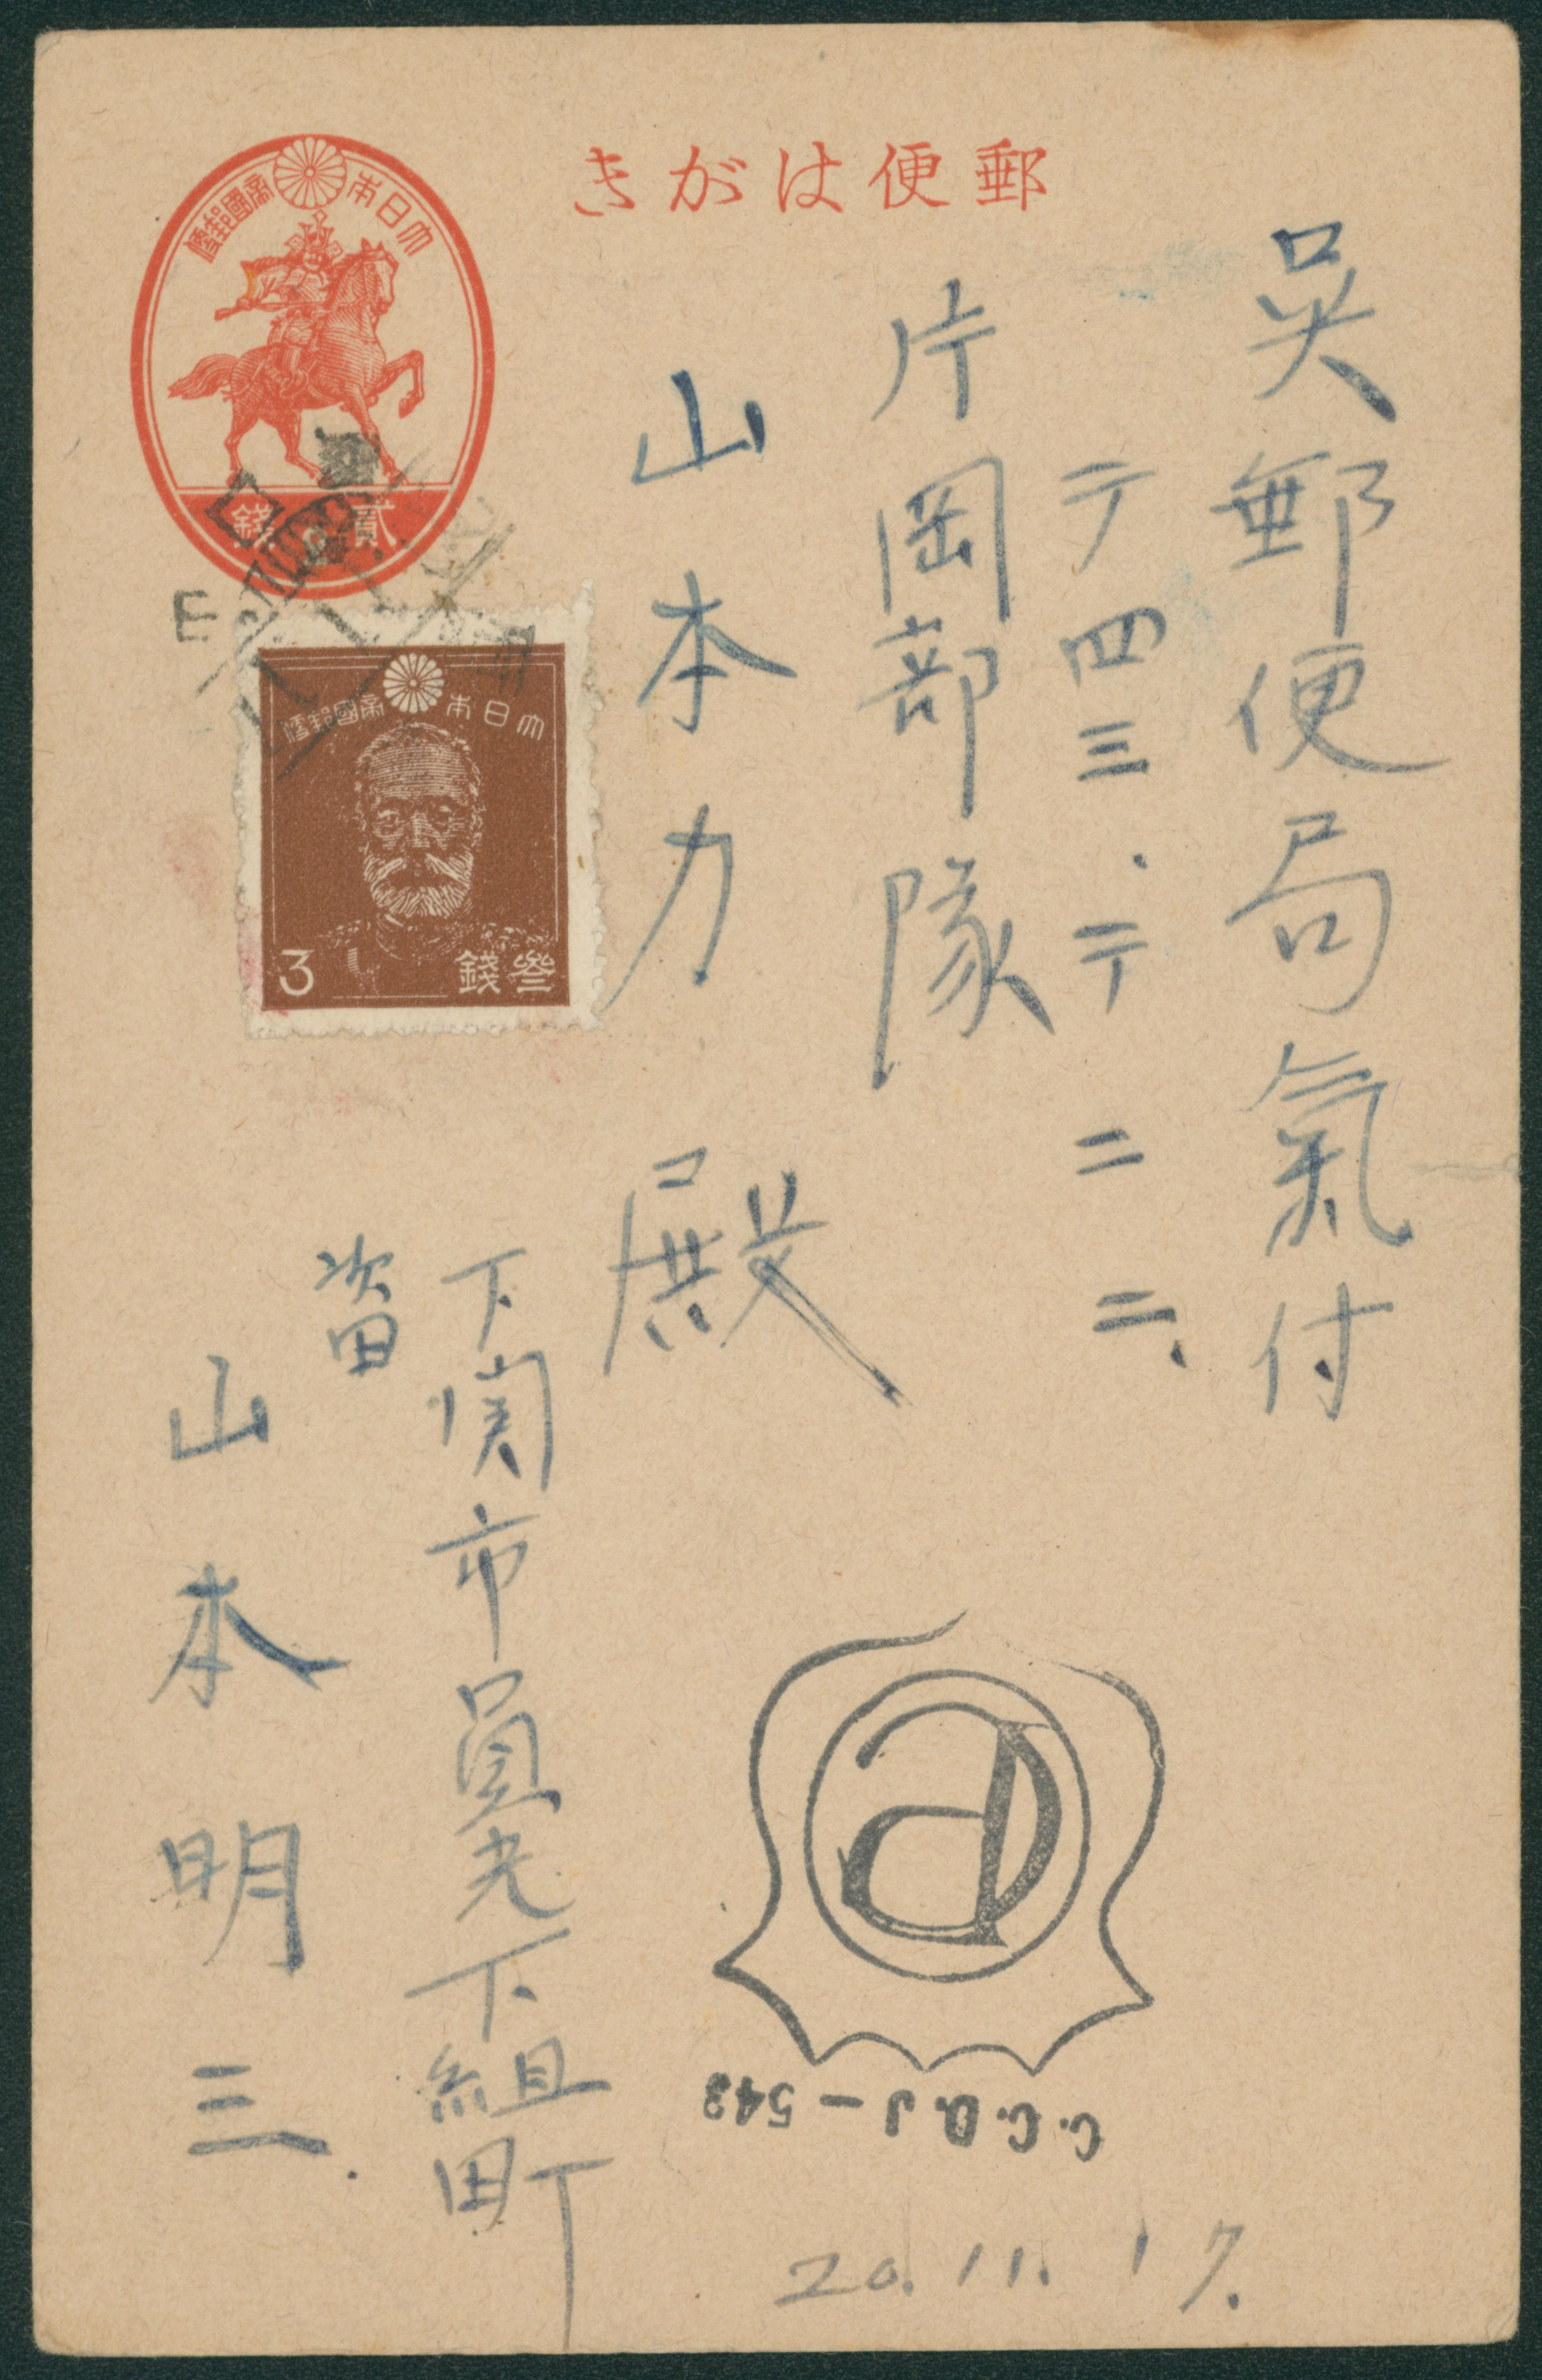 郵便はがき
大日本帝國郵便
貳錢
大日本帝國郵便
3 參錢
呉郵便局氣付
テ四三.テ二二.
片岡部隊
山本力殿
下関市員光下組町
山本明三.
C.C.D.J-543
20.11.17.